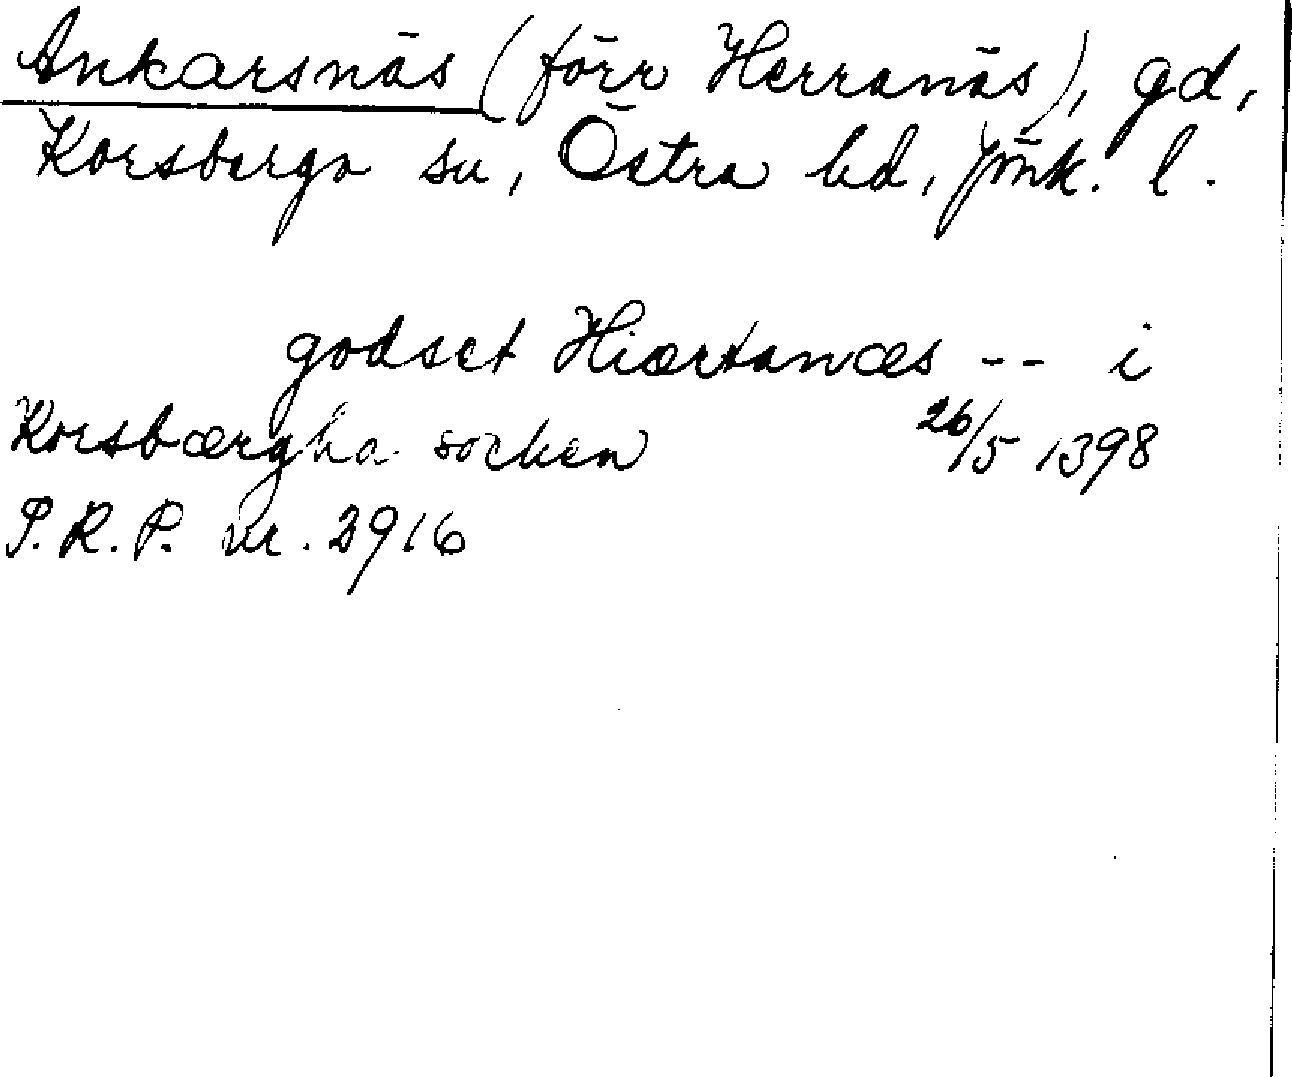 Ankarsnäs (förr Herranäs), gd,
Korsberga sn, Östra hd, Jönk. l.
godset Hiærtanæs -- i
Korsbærgha socken 26/5 1398
P.R.P. nr. 2916